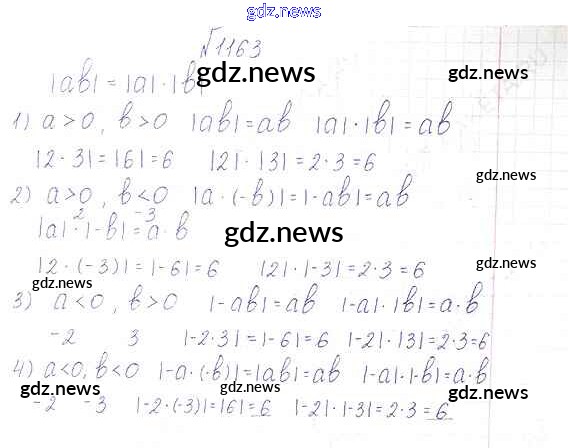 gdz.news
№1163
|ab| = |a|·|b|
gdz.news
gdz.news
1) a > 0, b > 0 |ab| = ab |a|·|b| = ab
|2·3| = |6| = 6 |2|·|3| = 2·3 = 6
gdz.news
2) a > 0, b < 0 |a·(-b)| = |-ab| = ab
2 -3
|a|·|-b| = a·b
gdz.news
|2·(-3)| = |-6| = 6 |2|·|-3| = 2·3 = 6
gdz.news
gdz.news
3) a < 0, b > 0 |-ab| = ab |-a|·|b| = a·b
-2 3 |-2·3| = |-6| = 6 |-2|·|3| = 2·3 = 6
4) a < 0, b < 0 |-a·(-b)| = |ab| = ab |-a|·|-b| = a·b
gdz.news
gdz.news
gdz.news
-2 -3 |-2·(-3)| = |6| = 6 |-2|·|-3| = 2·3 = 6